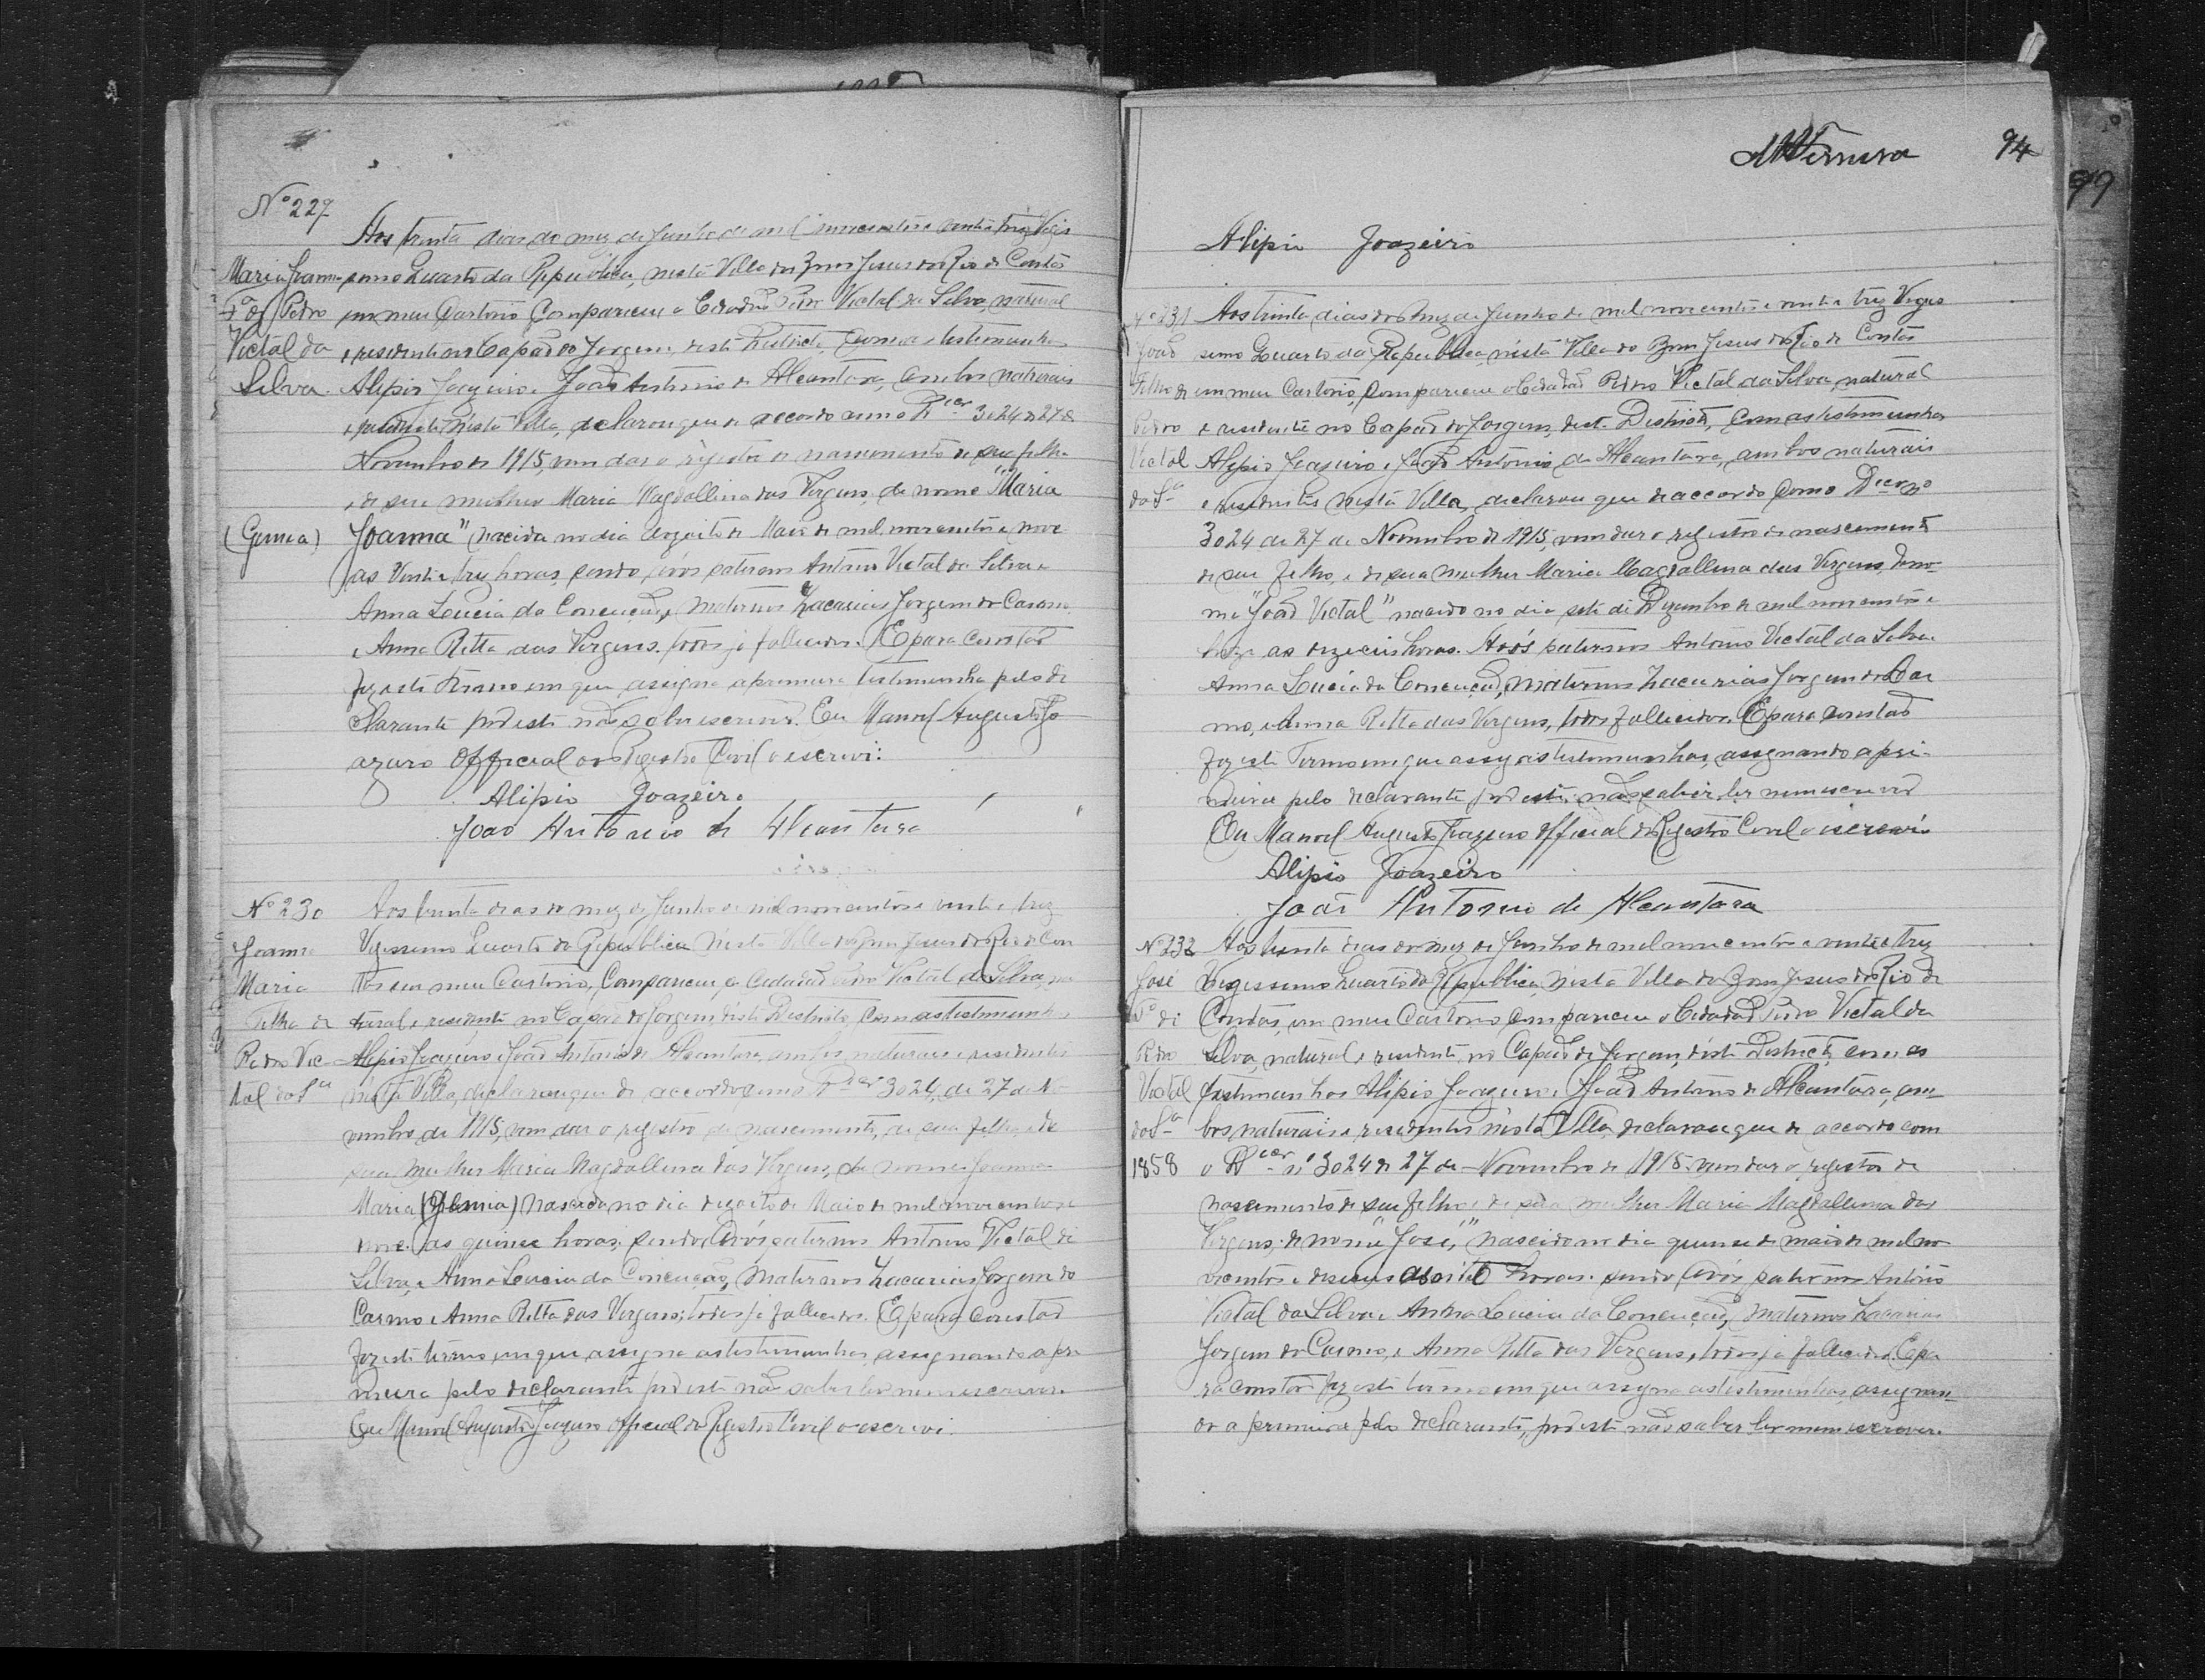 Nº 227
Aos trinta dias do mez de Junho de mil novecentos e vinte e trez Viges
Maria Joanna
simo Quarto da Republica, nesta Villa do Bom Jesus do Rio de Contas
Fª de Pedro
em meu Cartorio Compareceu o Cidadão Pedro Victal da Silva, natural
Victal da
e residente no Capão do Jorgem, deste Districto, com as testemunhas
Silva.
Alipio Joazeiro e João Antonio de Alcantara, ambos naturais
e residentes nésta Villa, declarou que de accordo com o Dcer 3024 de 27 de
Novembro de 1915, vem dar o registro de nascimento de sua filha
e de sua mulher Maria Magdallina das Virgens, de nome "Maria
(Gemea)
Joanna" nacida no dia dezoito de Maio de mil novecentos e nove
as Vinte e trez horas, sendo avós paternos Antonio Victal da Silva e
Anna Lucia da Conceução, maternos Zacarias Jorgem do Carmo,
e Anna Ritta das Virgens, todos já fallecidos. E para constar
fiz este termo em que assigna a primeira testemunha pelo de
clarante por este não saber escrever. Eu Manoel Augusto Jo
azeiro Official do Registro Civil o escrevi:
Alipio Joazeiro
João Antonio de Alcantara
Nº 230
Aos trinta dias do mez de Junho de mil novecentos e vinte e trez
Joanna
Vigessimo Quarto da Republica nésta Villa do Bom Jesus do Rio de Con
Maria
tas em meu Cartorio, Compareceu o Cidadão Pedro Victal da Silva, na
Filha de
tural e residente no Capão do Jorgem, déste Districto, com as testemunhas
Pedro Vic-
Alipio Joazeiro e João Antonio de Alcantara, ambos naturais e residentes
tal da Sª
nésta Villa, declarou que de accordo com o Dcer 3024, de 27 de No
vembro de 1915, vem dar o registro de nascimento, de sua filha, e de
sua mulher Maria Magdallina das Virgens, de nome Joanna
Maria (Gemia) nascida no dia dezoito de Maio de mil novecentos e
nove. as quinze horas; sendo Avós paternos Antonio Victal da
Silva, e Anna Lucia da Conceução, Maternos Zacarias Jorgem do
Carmo e Anna Ritta das Virgens; todos já fallecidos. E para constar
fiz este termo, em que assigna as testemunhas, assignando a pri
meira pelo declarante por este não saber ler nem escrever.
Eu Manoel Augusto Joazeiro Official do Registro Civil o escrevi.
94
99
Alipio Joazeiro
Nº 231
Aos trinta dias do Mez de Junho de mil novecentos e vinte e trez Viges
João
simo Quarto da Republica, nésta Villa do Bom Jesus do Rio de Contas
Filho de
em meu Cartorio, Compareceu o Cidadão Pedro Victal da Silva, natural
Pedro
e residente no Capão do Jorgem, dest. Districto, com as testemunhas
Victal
Alipio Joazeiro e João Antonio de Alcantara, ambos naturais
da Sª
e residentes nesta Villa, declarou que de accordo com o
3024 de 27 de Novembro de 1915, vem dar o registro de nascimento
de seu filho, e de sua mulher Maria Magdallena das Virgens, de no-
me "João Victal" nacido no dia sete de Dezembro de mil novecentos e
as dezeseis horas. Avós paternos Antonio Victal da Silva e
Anna Lucia da Conceução, maternos Zacarias Jorgem do Car
mo, e Anna Ritta das Virgens, todos fallecidos. E para constar
fiz este Termo em que assig. as testemunhas, assignando a pri-
meira pelo declarante por este não saber ler nem escrever
Eu Manoel Augusto Joazeiro Official do Registro Civil o escrevi
Alipio Joazeiro
João Antonio de Alcantara
Nº 232
Aos trinta dias do mez de Junho de mil novecentos e vinte e trez
José
Vigessimo Quarto da Republica, nesta Villa do Bom Jesus do Rio de
Fº de
Contas, em meu Cartorio compareceu o Cidadão Pedro Victal da
Pedro
Silva, natural e residente, no Capão do Jorgem, déste Districto, com as
Victal
testemunhas Alipio Joazeiro e João Antonio de Alcantara, am-
da Sª
bos naturais e residentes nésta Villa, declarou que de accordo com
1858
o Dcer nº 3024 de 27 de Novembro de 1915. vem dar o registro de
nascimento de seu filho e de sua mulher Maria Magdallena das
Virgens, de nome "José," nascido no dia quinze de maio de mil no
vecentos e deseseis as oito horas. sendo avós paternos Antonio
Victal da Silva e Anna Lucia da Conceução, maternos Zacarias
Jorgem do Carmo, e Anna Ritta das Virgens, todos já fallecidos. E pa
ra constar fiz este termo em que assigna as testemunhas, assignan-
do a primeira pelo declarante, por este não saber ler nem escrever.